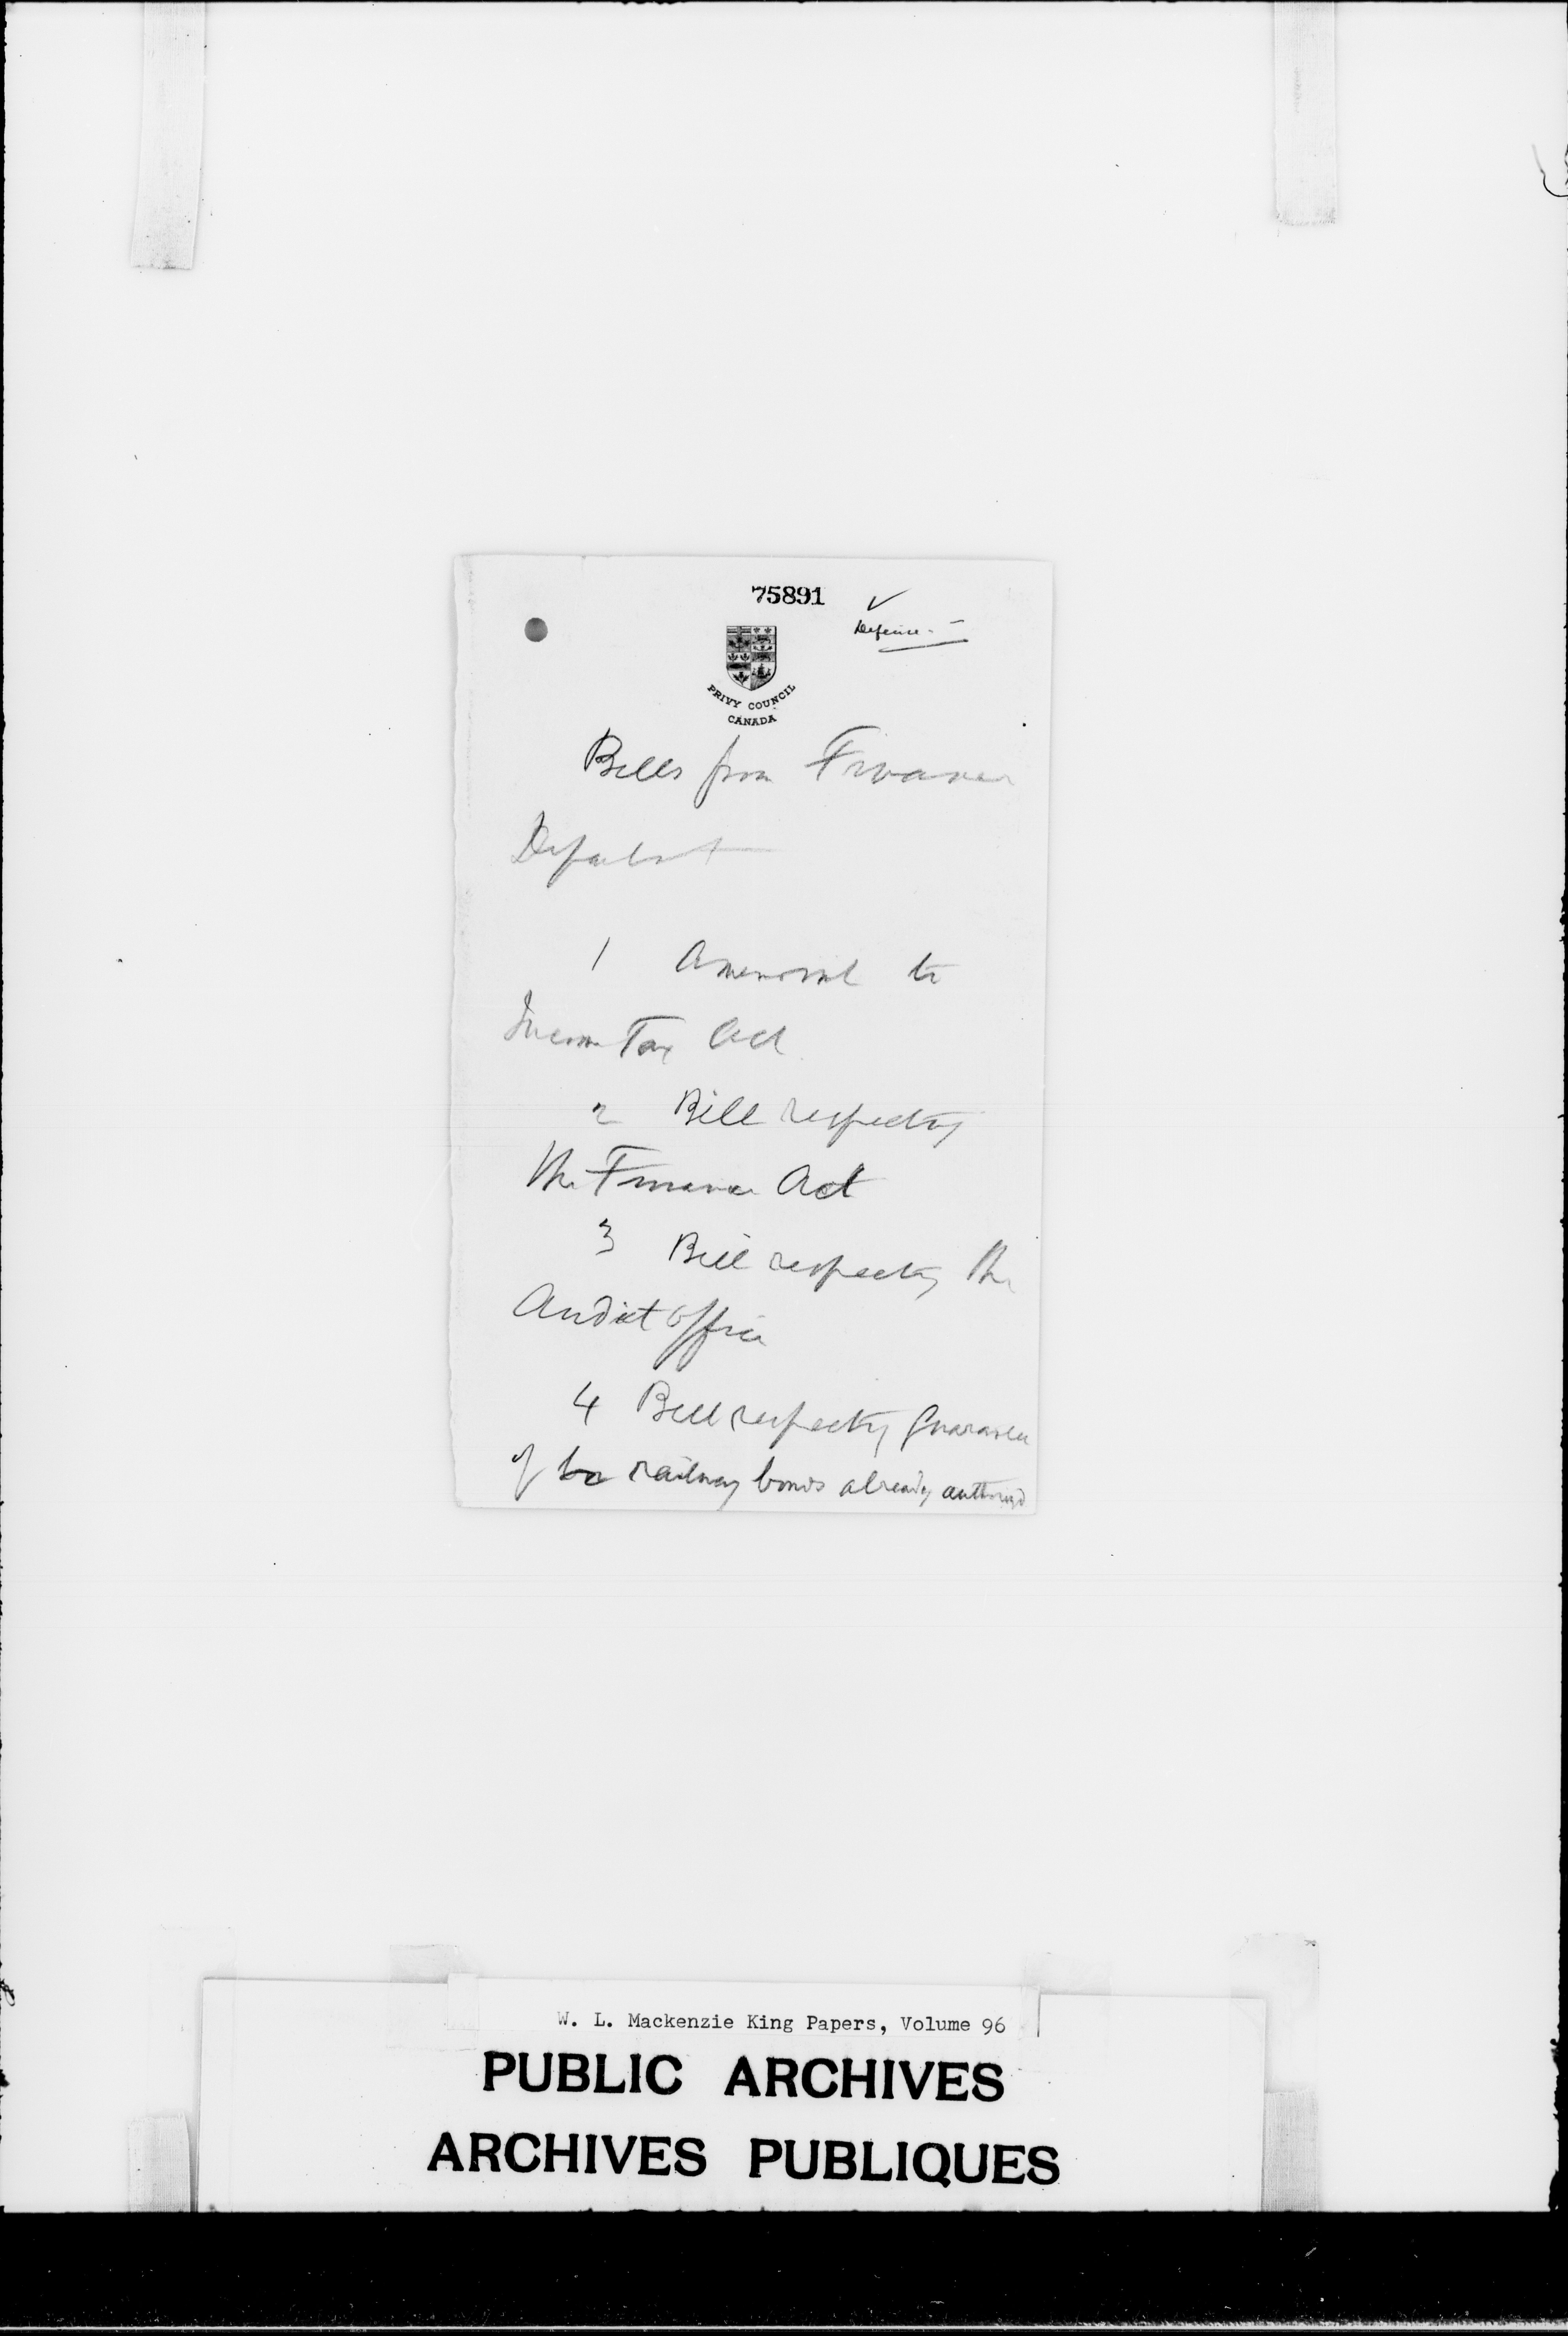 75891
Defence. -
PRIVY COUNCIL
CANADA
Bills from Finance
Department
1 Amendment to
Income Tax Act
2 Bill respecting
the Finance Act
3 Bill respecting the
Audit Office
4 Bill respecting guarantee
of railway bonds already authorized
W. L. Mackenzie King Papers, Volume 96
PUBLIC ARCHIVES
ARCHIVES PUBLIQUES